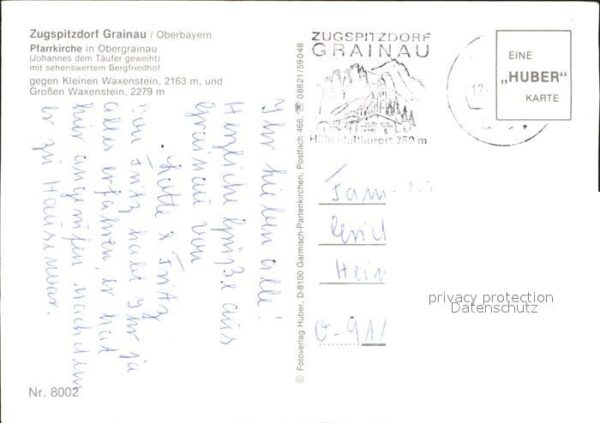 Zugspitzdorf Grainau / Oberbayern
Pfarrkirche in Obergrainau
(Johannes dem Täufer geweiht)
mit sehenswertem Bergfriedhof
gegen Kleinen Waxenstein, 2163 m, und
Großen Waxenstein, 2279 m
Ihr lieben alle!
Herzliche Grüße aus
Grainau von
Lotte & Fritz
Von Fritz habt Ihr ja
alles erfahren, er hat
hier angerufen, nachdem
er zu Hause war.
Nr. 8002
© Fotoverlag Huber, D-8100 Garmisch-Partenkirchen, Postfach 466, ☎ 08821/59048
ZUGSPITZDORF
GRAINAU
Höhenluftkurort 750 m
12
EINE
„HUBER"
KARTE
Fam
O-911
privacy protection
Datenschutz